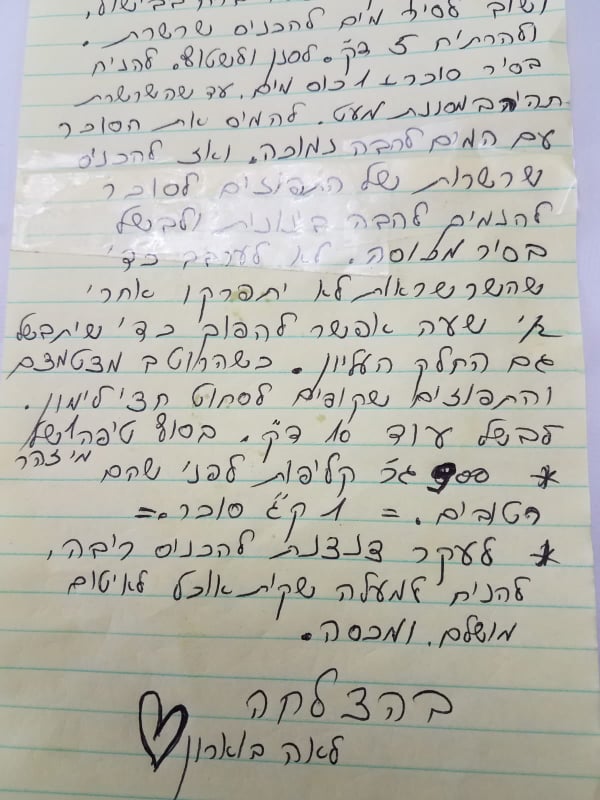 ושוב לסיר מים להכניס שרשרת.
ולהרתיח 5 דק'. לסנן ולשטוף. להניח
בסיר סוכר + 1 כוס מים. עד שהשרשרת
תהיה במסננת מעט. להמיס את הסוכר
עם המים להבה נמוכה. ואז להכניס
שרשרות של התפוזים לסוכר
להנמיך להבה בינונית ולבשל
בסיר מכוסה. לא לערבב כדי
שהשרשראות לא יתפרקו אחרי
חצי שעה אפשר להפוך כדי שיתבשל
גם החלק העליון. כשהרוטב מצטמצם
והתפוזים שקופים לסחוט חצי לימון.
לבשל עוד 10 דק'. בסוף טיפה של
מי זהר
* 900 גר' קליפות לפני שהם
רטובים. = 1 ק"ג סוכר. =
* לעקר צנצנת להכניס ריבה,
להניח למעלה שקית אוכל לאיטום
מושלם. ומכסה.
בהצלחה
לאה בוארון